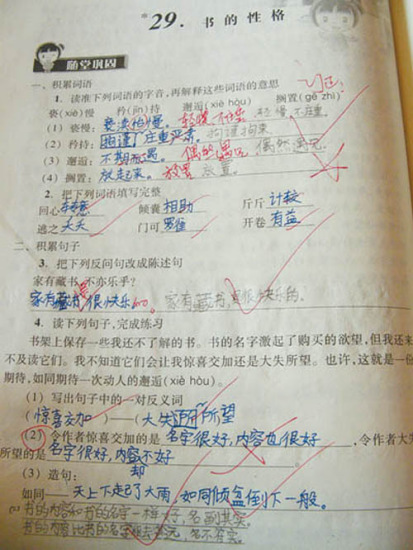 *29. 书的性格
随堂巩固
一、积累词语
1. 读准下列词语的字音,再解释这些词语的意思
亵(xiè)慢 矜(jīn)持 邂逅(xiè hòu) 搁置(gē zhì)
(1) 亵慢: 轻慢,不庄重
(2) 矜持: 庄重严肃。 拘谨拘束
(3) 邂逅: 不期而遇。 偶然遇见 偶然遇见
(4) 搁置: 放起来。 放置 放置。
2. 把下列词语填写完整
回心转意 倾囊相助 斤斤计较
逃之夭夭 门可罗雀 开卷有益
二、积累句子
3. 把下列反问句改成陈述句
家有藏书,不亦乐乎?
家有藏书,很快乐 家有藏书,是很快乐的。
4. 读下列句子,完成练习
书架上保存一些我还不了解的书。书的名字激起了购买的欲望,但我还来
不及读它们。我不知道它们会让我惊喜交加还是大失所望。也许,这就是一份
期待,如同期待一次动人的邂逅(xiè hòu)。
(1) 写出句子中的一对反义词
(惊喜交加)——(大失所望)
(2) 令作者惊喜交加的是名字很好,内容也很好,令作者大失
所望的是名字很好,内容却不好。
(3) 造句:
如同——天上下起了大雨,如同倾盆倒下一般。
书的内容和书的名字一样好,名副其实。
书的内容比书的名字,名不符实。